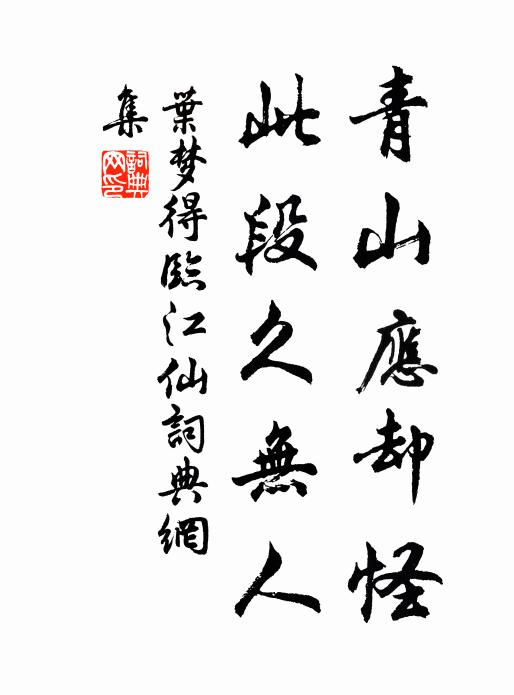 青山應却怪
此段久無人
葉梦得臨江仙詞典網
集
詞典
网印